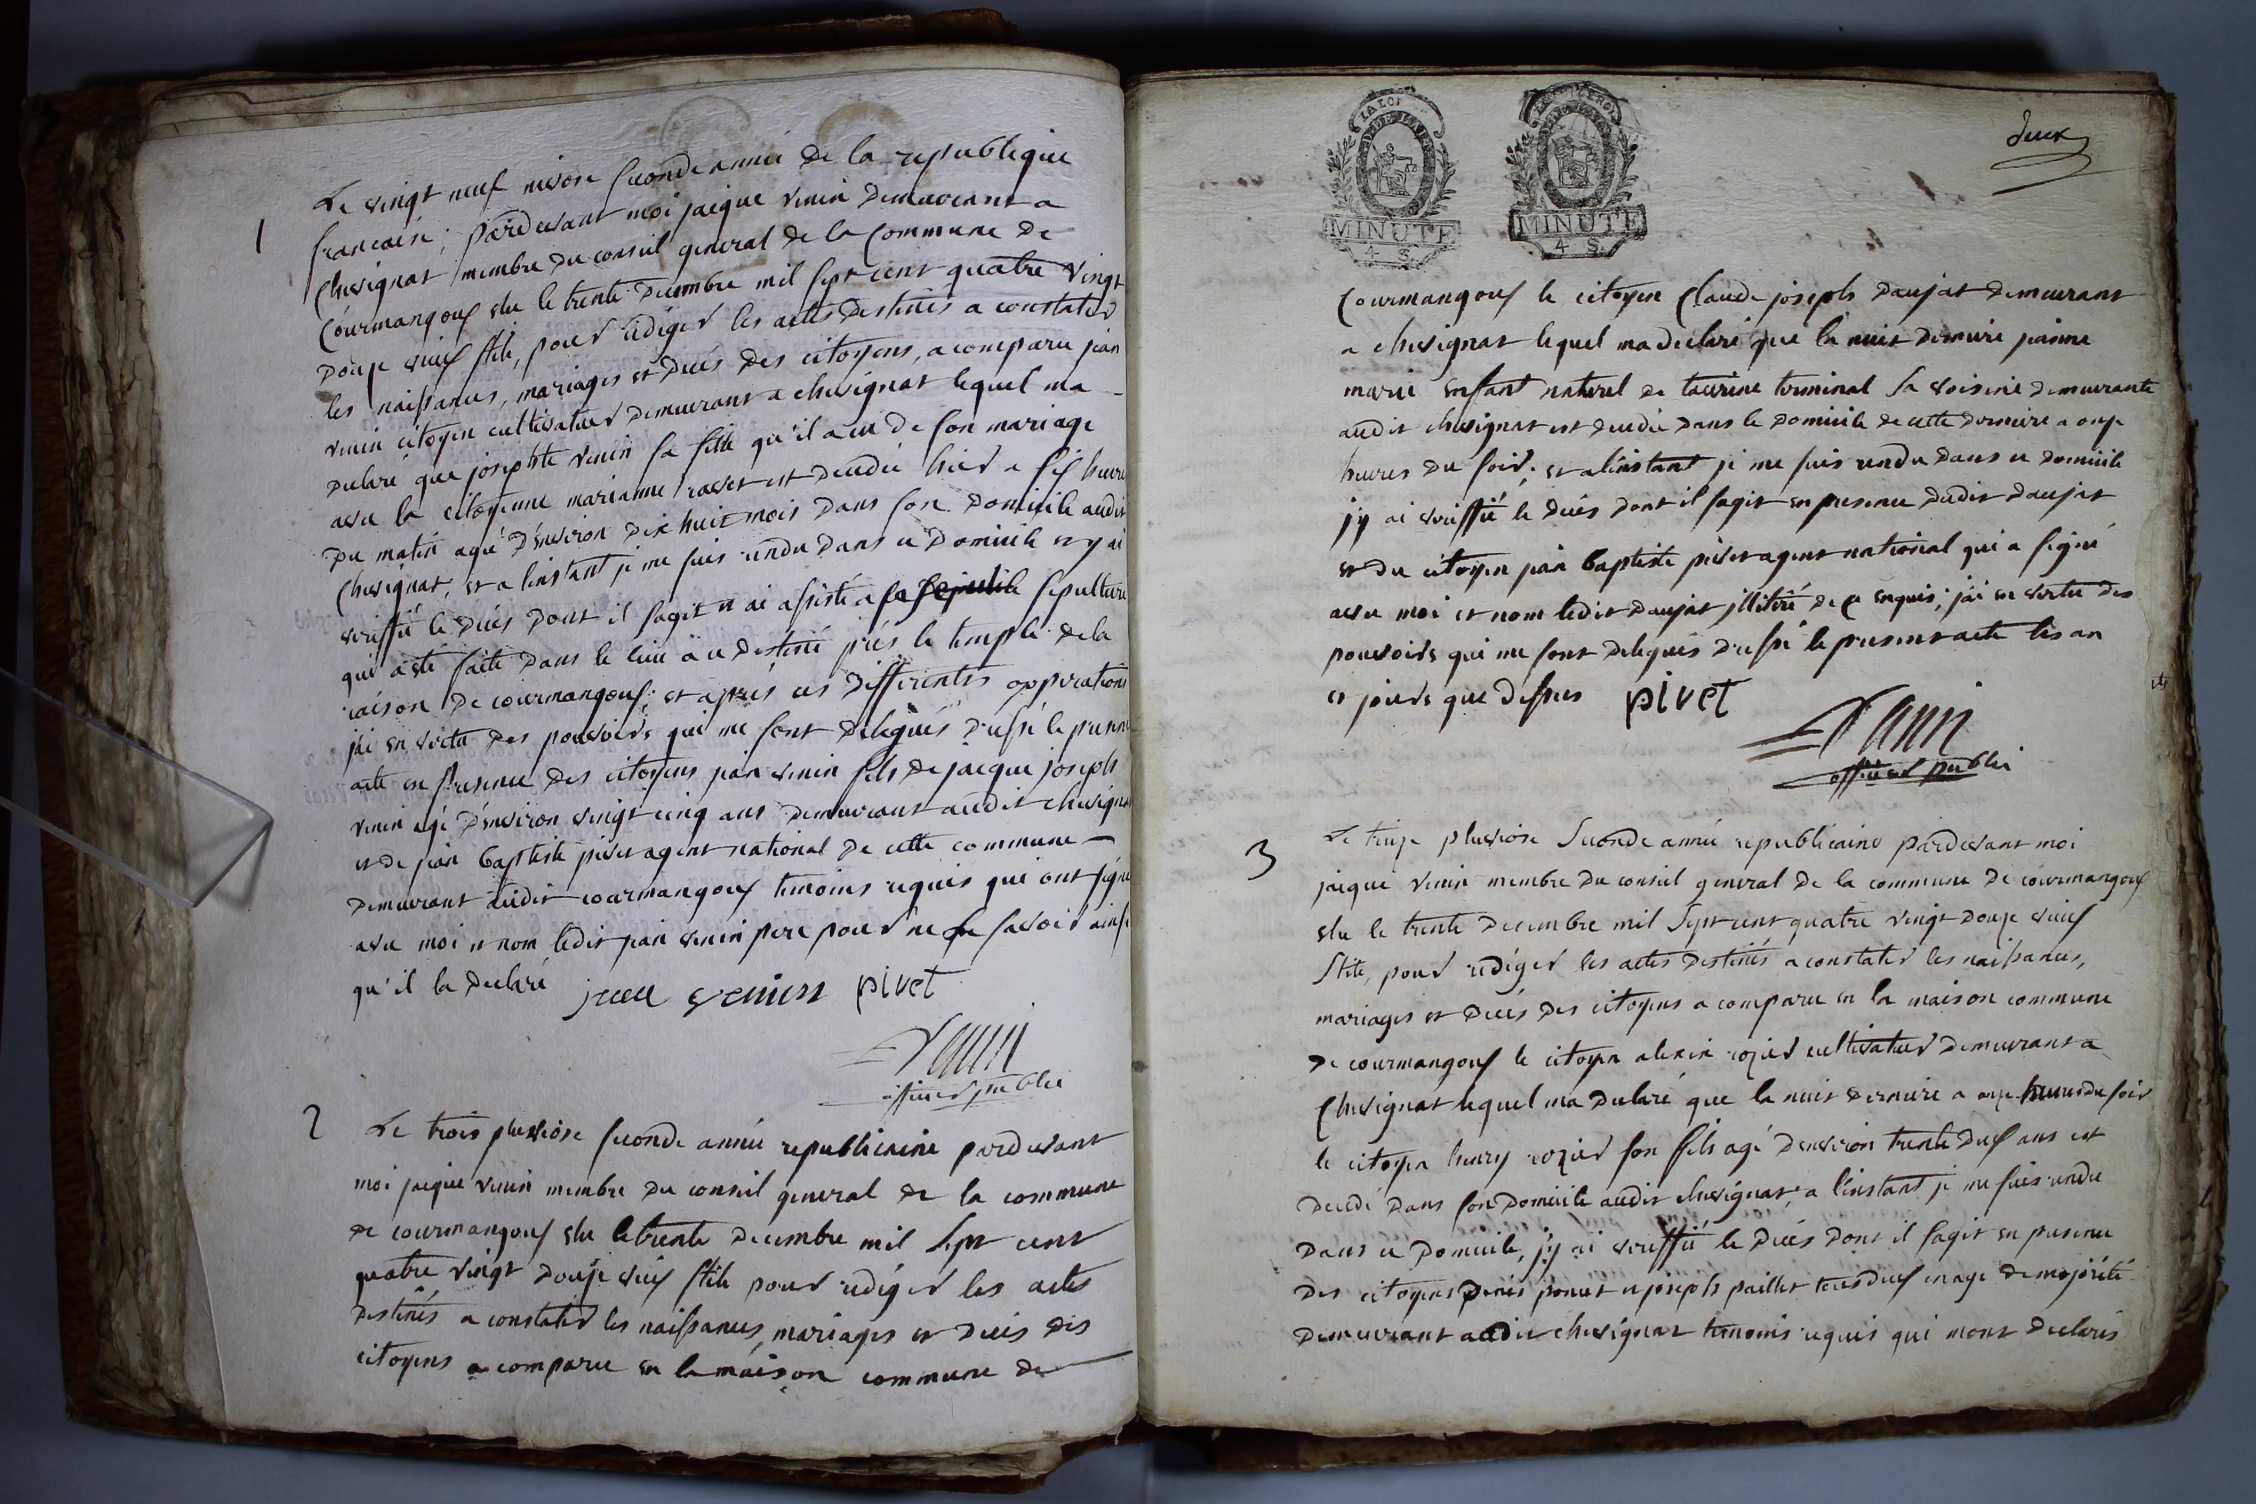 1
Le vingt neuf nivose seconde année de la republique
francaise; pardevant moi jacque venin demeurant a
Chevignat membre du conseil general de la Commune de
Courmangoux elu le trente decembre mil sept cent quatre vingt
douze vieux stile, pour rédiger les actes destinés a constater
les naissances, mariages et decès des citoyens, a comparu jean
venin citoyen cultivateur demeurant a chevignat lequel ma
declaré que josephte venin sa fille qu'il a eu de son mariage
avec la citoyenne marianne ravet est decedée hier a six heure
du matin agé d'environ dix huit mois dans son domicile audit
Chevignat, et a linstant je me suis rendu dans ce domicile et y ai
veriffié le decès dont il sagit et ai assisté a sa sepulture
qui a eté faite dans le lieu a ce destiné près le temple de la
raison de courmangoux; et après ces differentes opperations
jai en vertu des pouvoirs qui me sont delegués dressé le presen
acte en presence des citoyens jean venin fils de jacque joseph
venin agé d'environ vingt cinq ans demeurant audit chevignat
et de jean baptiste pivet agent national de cette commune
demeurant audit courmangoux temoins requis qui ont signé
avec moi et nom ledit jean venin pere pour ne savoir ainsi
qu'il la declaré
jean venin pivet
Vanin
officier public
2
Le trois pluviose seconde année republicaine pardevant
moi jacque venin membre du conseil general de la commune
de courmangoux elu le trente decembre mil sept cent
quatre vingt douze vieux stile pour rediger les actes
destinés a constater les naissances, mariages et decès des
citoyens a comparu en la maison commune de
LA LOI
MINUTE
4 S.
MINUTE
4 S.
deux
Courmangoux le citoyen Claude joseph daujat demeurant
a chevignat lequel ma declaré que la nuit derniere jeanne
marie enfant naturel de taurine terminal sa voisine demeurante
audit chevignat est decedée dans le domicile de cette derniere a onze
heures du soir; et alinstant je me suis rendu dans ce domicile
jy ai veriffié le decès dont il sagit en presence dudit daujat
et du citoyen jean baptiste pivet agent national qui a signé
avec moi et nom ledit daujat illiteré de ce enquis; jai en vertu des
pouvoirs qui me sont delegués dressé le present acte les an
et jours que dessus pivet
Vanin
officier public
3
Le treize pluviose seconde année republicaine pardevant moi
jacque venin membre du conseil general de la commune de courmangoux
elu le trente decembre mil sept cent quatre vingt douze vieux
stile, pour rédiger les actes destinés a constater les naissances,
mariages et decès des citoyens a comparu en la maison commune
de courmangoux le citoyen alexis rozier cultivateur demeurant a
Chevignat lequel ma declaré que la nuit derniere a onze heures du soir
le citoyen henry rozier son fils agé denviron trente deux ans est
decedé dans son domicile audit chevignat; a linstant je me suis rendu
dans ce domicile, jy ai veriffié le decès dont il sagit en presence
des citoyens denis poncet et joseph paillet tous deux en age de majorité
demeurant audit chevignat temoins requis qui mont declarés